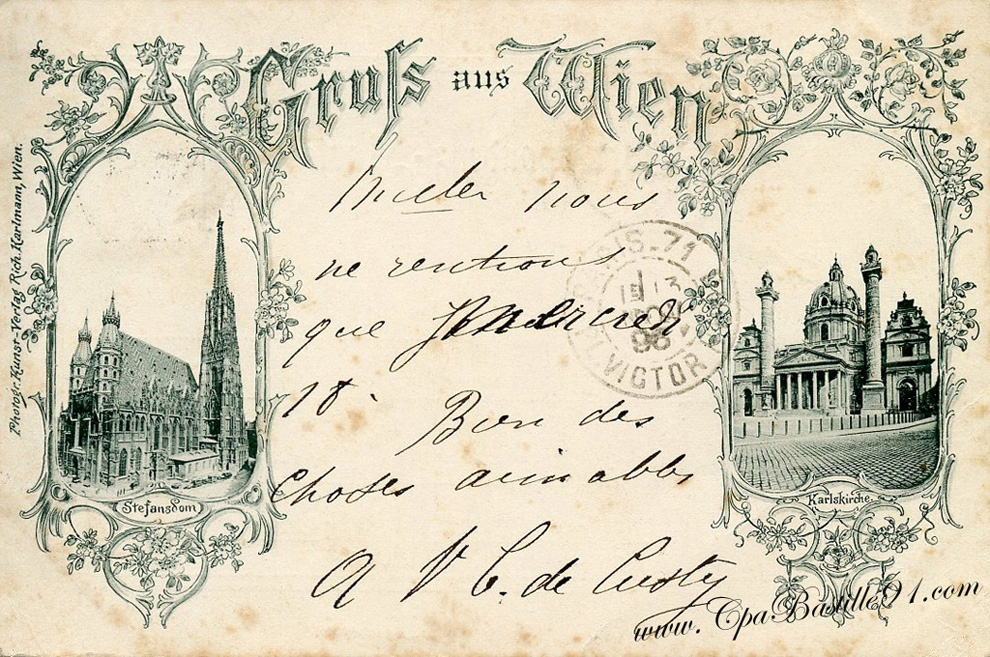 Gruss aus Wien
Photogr. Kunst-Verlag Rich. Karlmann, Wien.
nous
ne rentrons
que
18.
Bien des
Choses aimables
de
Stefansdom
Karlskirche.
PARIS-71
13
96
VICTOR
www.CpaBastille91.com